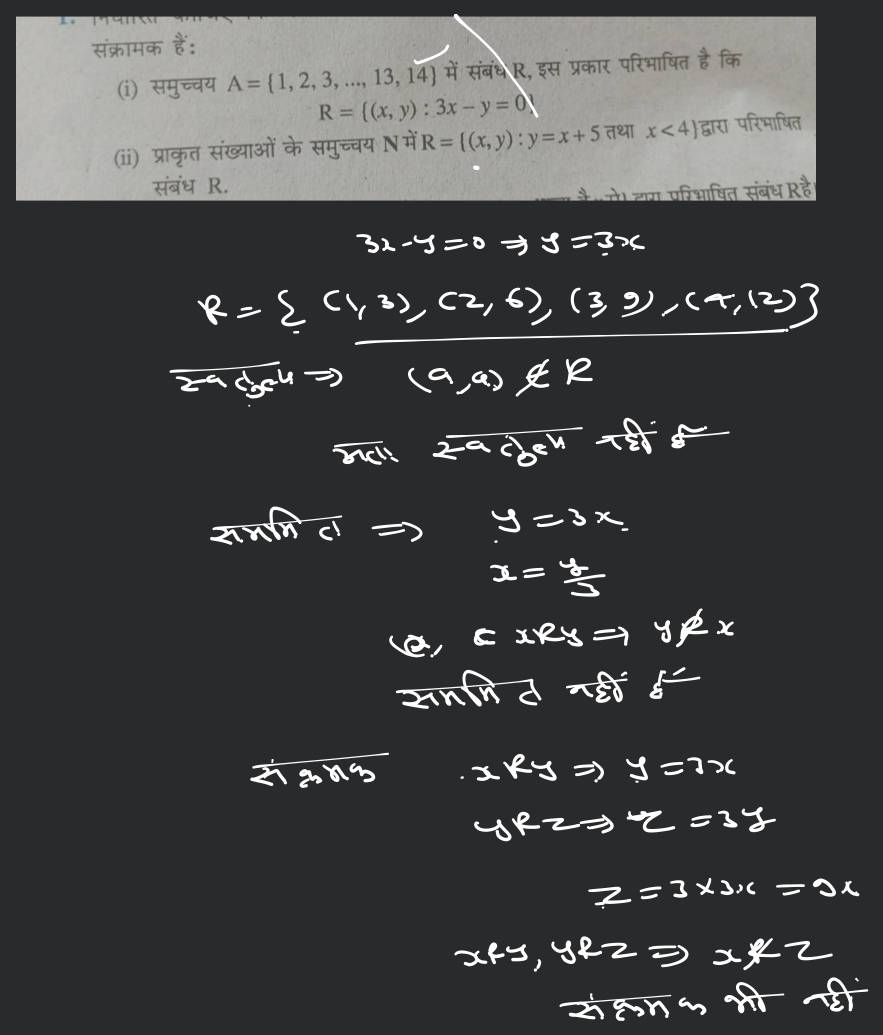 संक्रामक हैं:
(i) समुच्चय A = {1, 2, 3, ..., 13, 14} में संबंध R, इस प्रकार परिभाषित है कि
R = {(x, y) : 3x – y = 0}
(ii) प्राकृत संख्याओं के समुच्चय N में R = {(x, y) : y = x + 5 तथा x < 4} द्वारा परिभाषित
संबंध R.
द्वारा परिभाषित संबंध R है।
3x - y = 0 ⇒ y = 3x
R = { (1, 3), (2, 6), (3, 9), (4, 12)}
स्वतुल्य ⇒ (a, a) ∉ R
अतः स्वतुल्य नहीं है
सममित ⇒ y = 3x
x = y/3
xRy ⇒ y R̸ x
सममित नहीं है
संक्रमक xRy ⇒ y = 3x
yRz ⇒ z = 3y
z = 3 × 3x = 9x
xRy, yRz ⇒ x R̸ z
संक्रमक भी नहीं